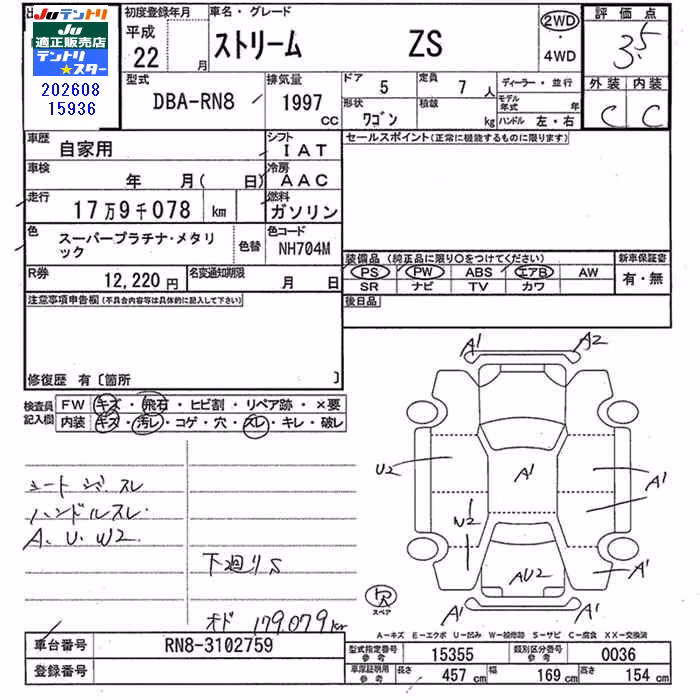 Juテントリ
Ju
適正販売店
テントリ
★スター
202608
15936
初度登録年月
平成
22 月
車名・グレード
ストリーム ZS
2WD
・
4WD
評価点
3.5
外装 内装
C C
型式
DBA-RN8
排気量
1997 cc
ドア 5
定員 7 人
形状 ワゴン
積載 kg
ディーラー・並行
モデル年式 年
ハンドル 左・右
車歴
自家用
シフト
IAT
車検
年 月( 日)
冷房
AAC
走行
17万9千078 km
燃料
ガソリン
色
スーパープラチナ・メタリック
色替
色コード
NH704M
R券
12,220円
名変通知期限
月 日
セールスポイント(正常に機能するものに限ります)
装備品(純正品に限り○をつけてください)
PS PW ABS エアB AW
SR ナビ TV カワ
新車保証書
有・無
後日品
注意事項申告欄(不具合内容等は具体的に記入して下さい)
修復歴 有〔箇所 〕
検査員
記入欄
FW キズ・飛石・ヒビ割・リペア跡・×要
内装 キズ・汚レ・コゲ・穴・スレ・キレ・破レ
シート スレ
ハンドルスレ.
A、U、W2
下廻りS
オド 179,079km
A1 A2
U2 A1 A1
W2
AU2 A1
A1 A1
スペア
A-キズ E-エクボ U-凹み W-補修跡 S-サビ C-腐食 XX-交換済
車台番号
RN8-3102759
登録番号
型式指定番号
参考
15355
類別区分番号
参考
0036
車庫証明用
参考
長さ 457 cm
幅 169 cm
高さ 154 cm